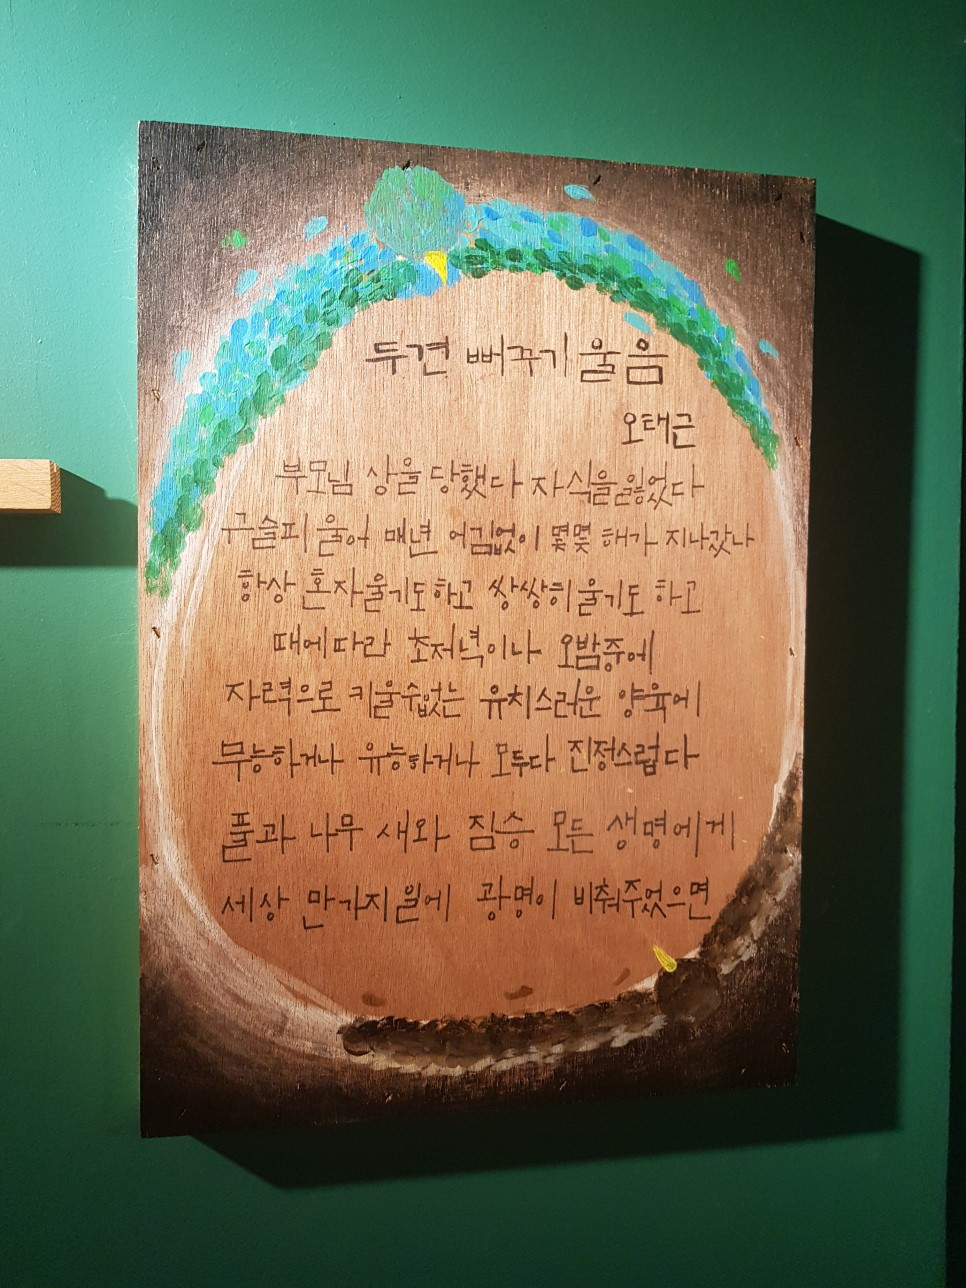 두견 뻐꾸기 울음
오태근
부모님 상을 당했다 자식을 잃었다
구슬피 울어 매년 어김없이 몇몇 해가 지나갔나
항상 혼자울기도하고 쌍쌍히 울기도 하고
때에따라 초저녁이나 오밤중에
자력으로 키울수없는 유치스러운 양육에
무능하거나 유능하거나 모두다 진정스럽다
풀과 나무 새와 짐승 모든 생명에게
세상 만가지일에 광명이 비춰주었으면